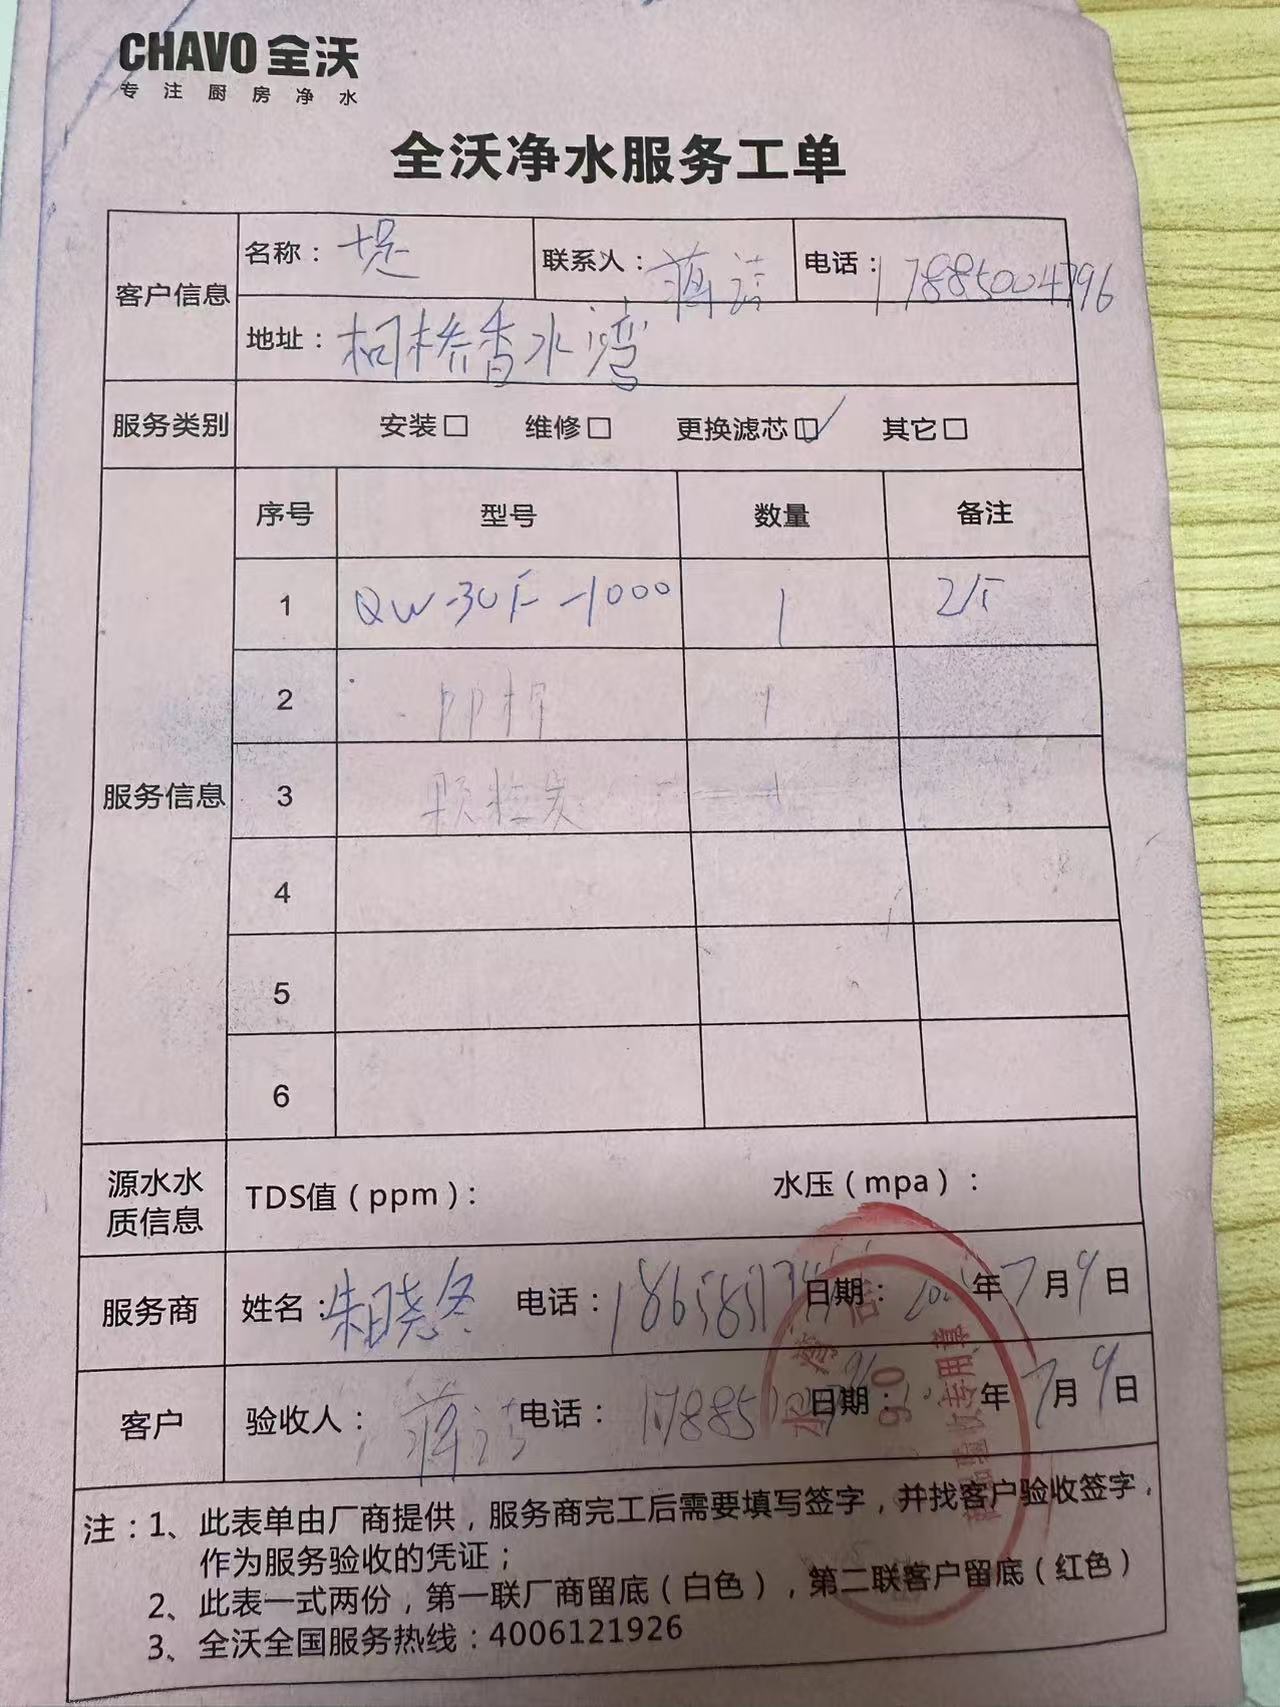 CHAVO 全沃
专注厨房净水
全沃净水服务工单
客户信息 名称：堤 联系人：蒋洁 电话：17885004796
地址：柯桥香水湾
服务类别 安装□ 维修□ 更换滤芯☑ 其它□
服务信息 序号 型号 数量 备注
1 QW-30F-1000 1
2 PP棉 1
3 颗粒炭 1
4
5
6
源水水质信息 TDS值（ppm）： 水压（mpa）：
服务商 姓名：朱晓冬 电话： 日期： 年7月9日
客户 验收人：蒋洁 电话： 日期： 年7月9日
注：1、此表单由厂商提供，服务商完工后需要填写签字，并找客户验收签字，
作为服务验收的凭证；
2、此表一式两份，第一联厂商留底（白色），第二联客户留底（红色）
3、全沃全国服务热线：4006121926